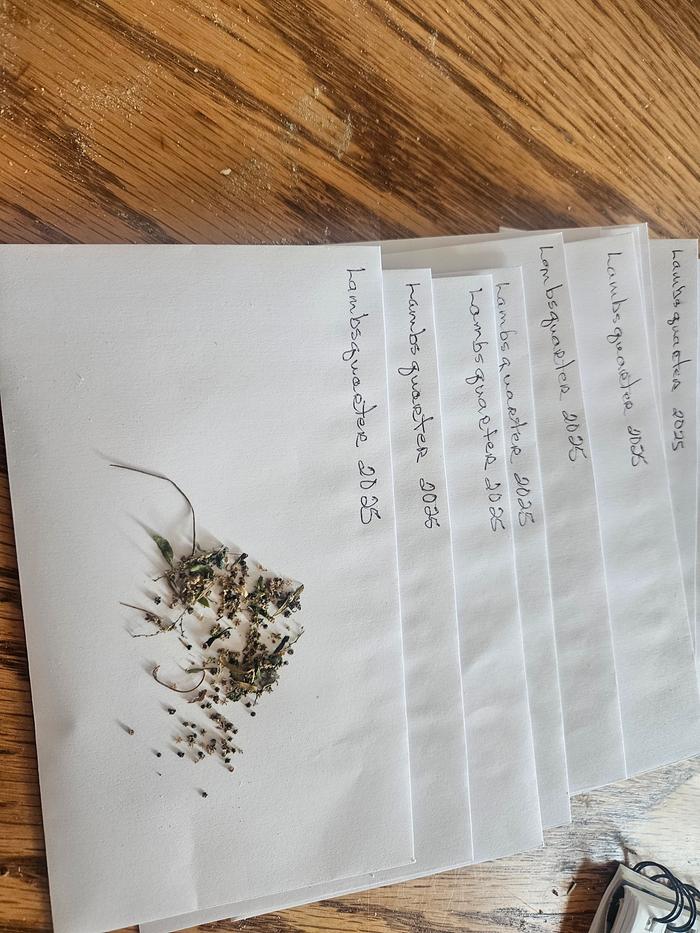 Lambsquarter 2025
Lambsquarter 2025
Lambsquarter 2025
Lambsquarter 2025
Lambsquarter 2025
Lambsquarter 2025
Lambsquarter 2025